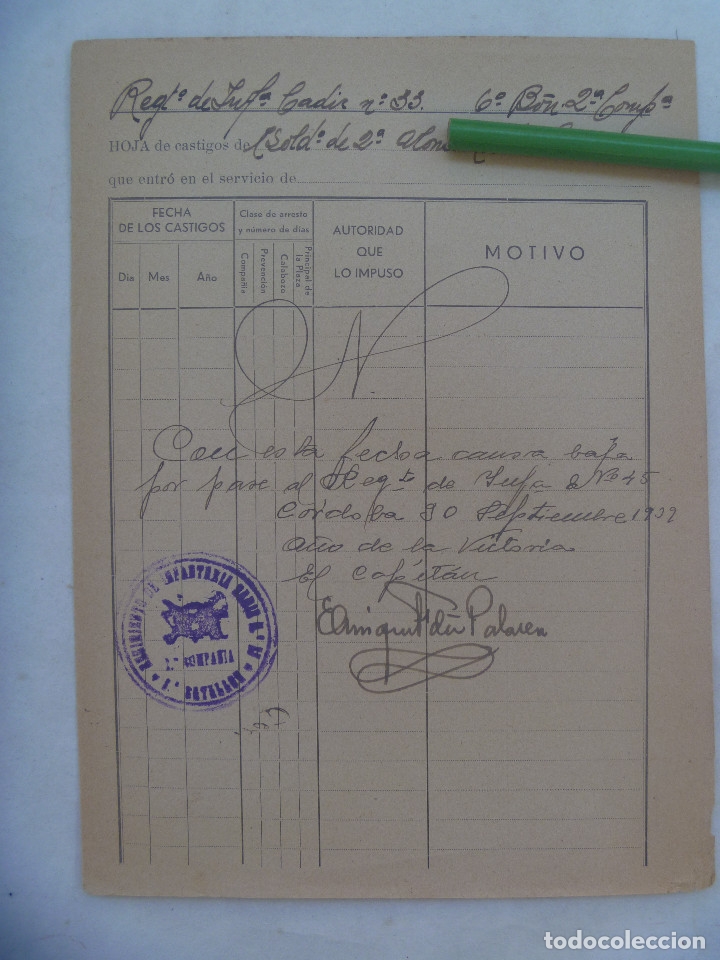 Regtº de Infª Cadiz nº 33. 6º Bón. 2ª Compª
HOJA de castigos del Soldº de 2ª Alon
que entró en el servicio de
FECHA DE LOS CASTIGOS
Clase de arresto y número de días
AUTORIDAD QUE LO IMPUSO
MOTIVO
Dia Mes Año
Compañía
Prevención
Calabozo
Principal de la Plaza
N
Con esta fecha causa baja
por pase al Regtº de Infª Nº 45
Córdoba 30 Septiembre 1939
Año de la Victoria
El Capitán
REGIMIENTO DE INFANTERIA CADIZ
2.ª COMPAÑIA
BATALLON
todocoleccion
todocoleccion.net